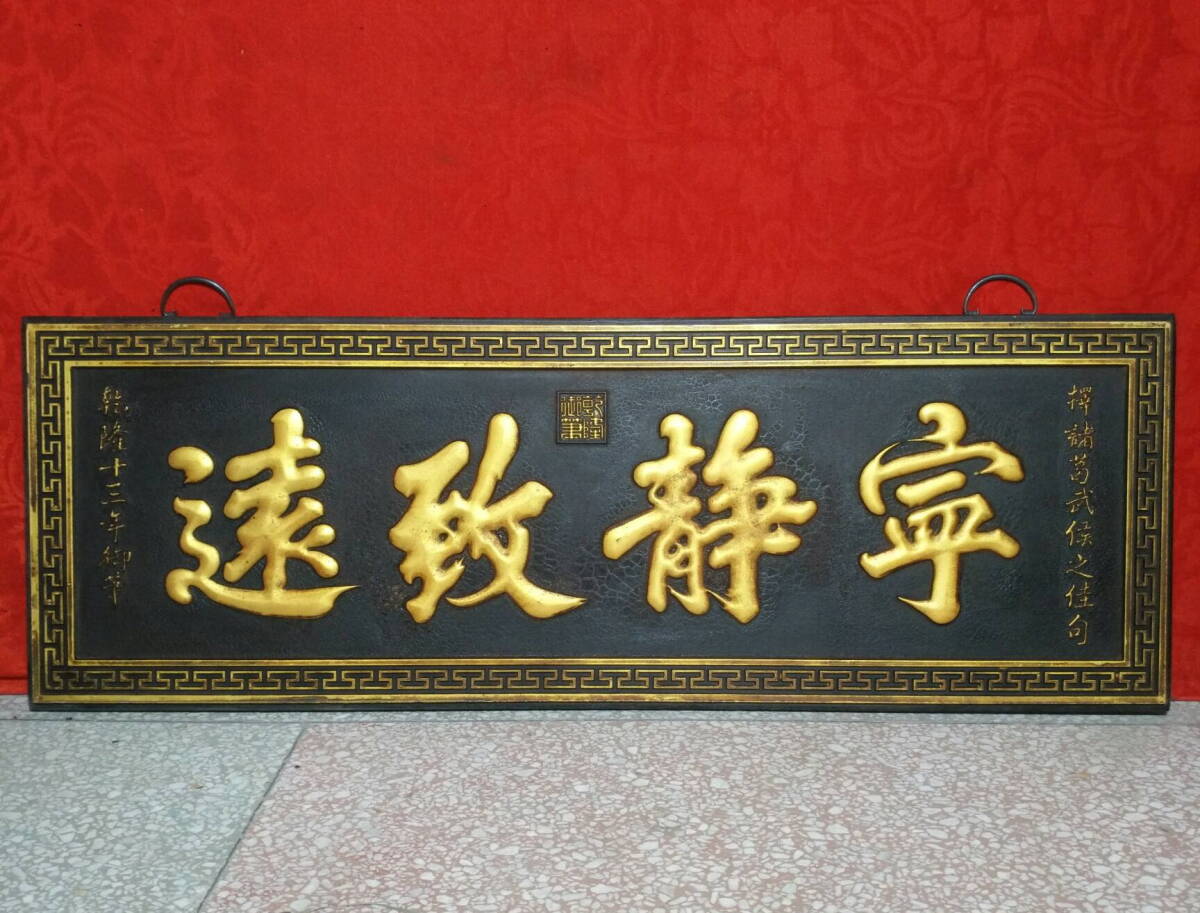 擇諸葛武侯之佳句
寧静致遠
乾隆御筆
乾隆十三年御筆